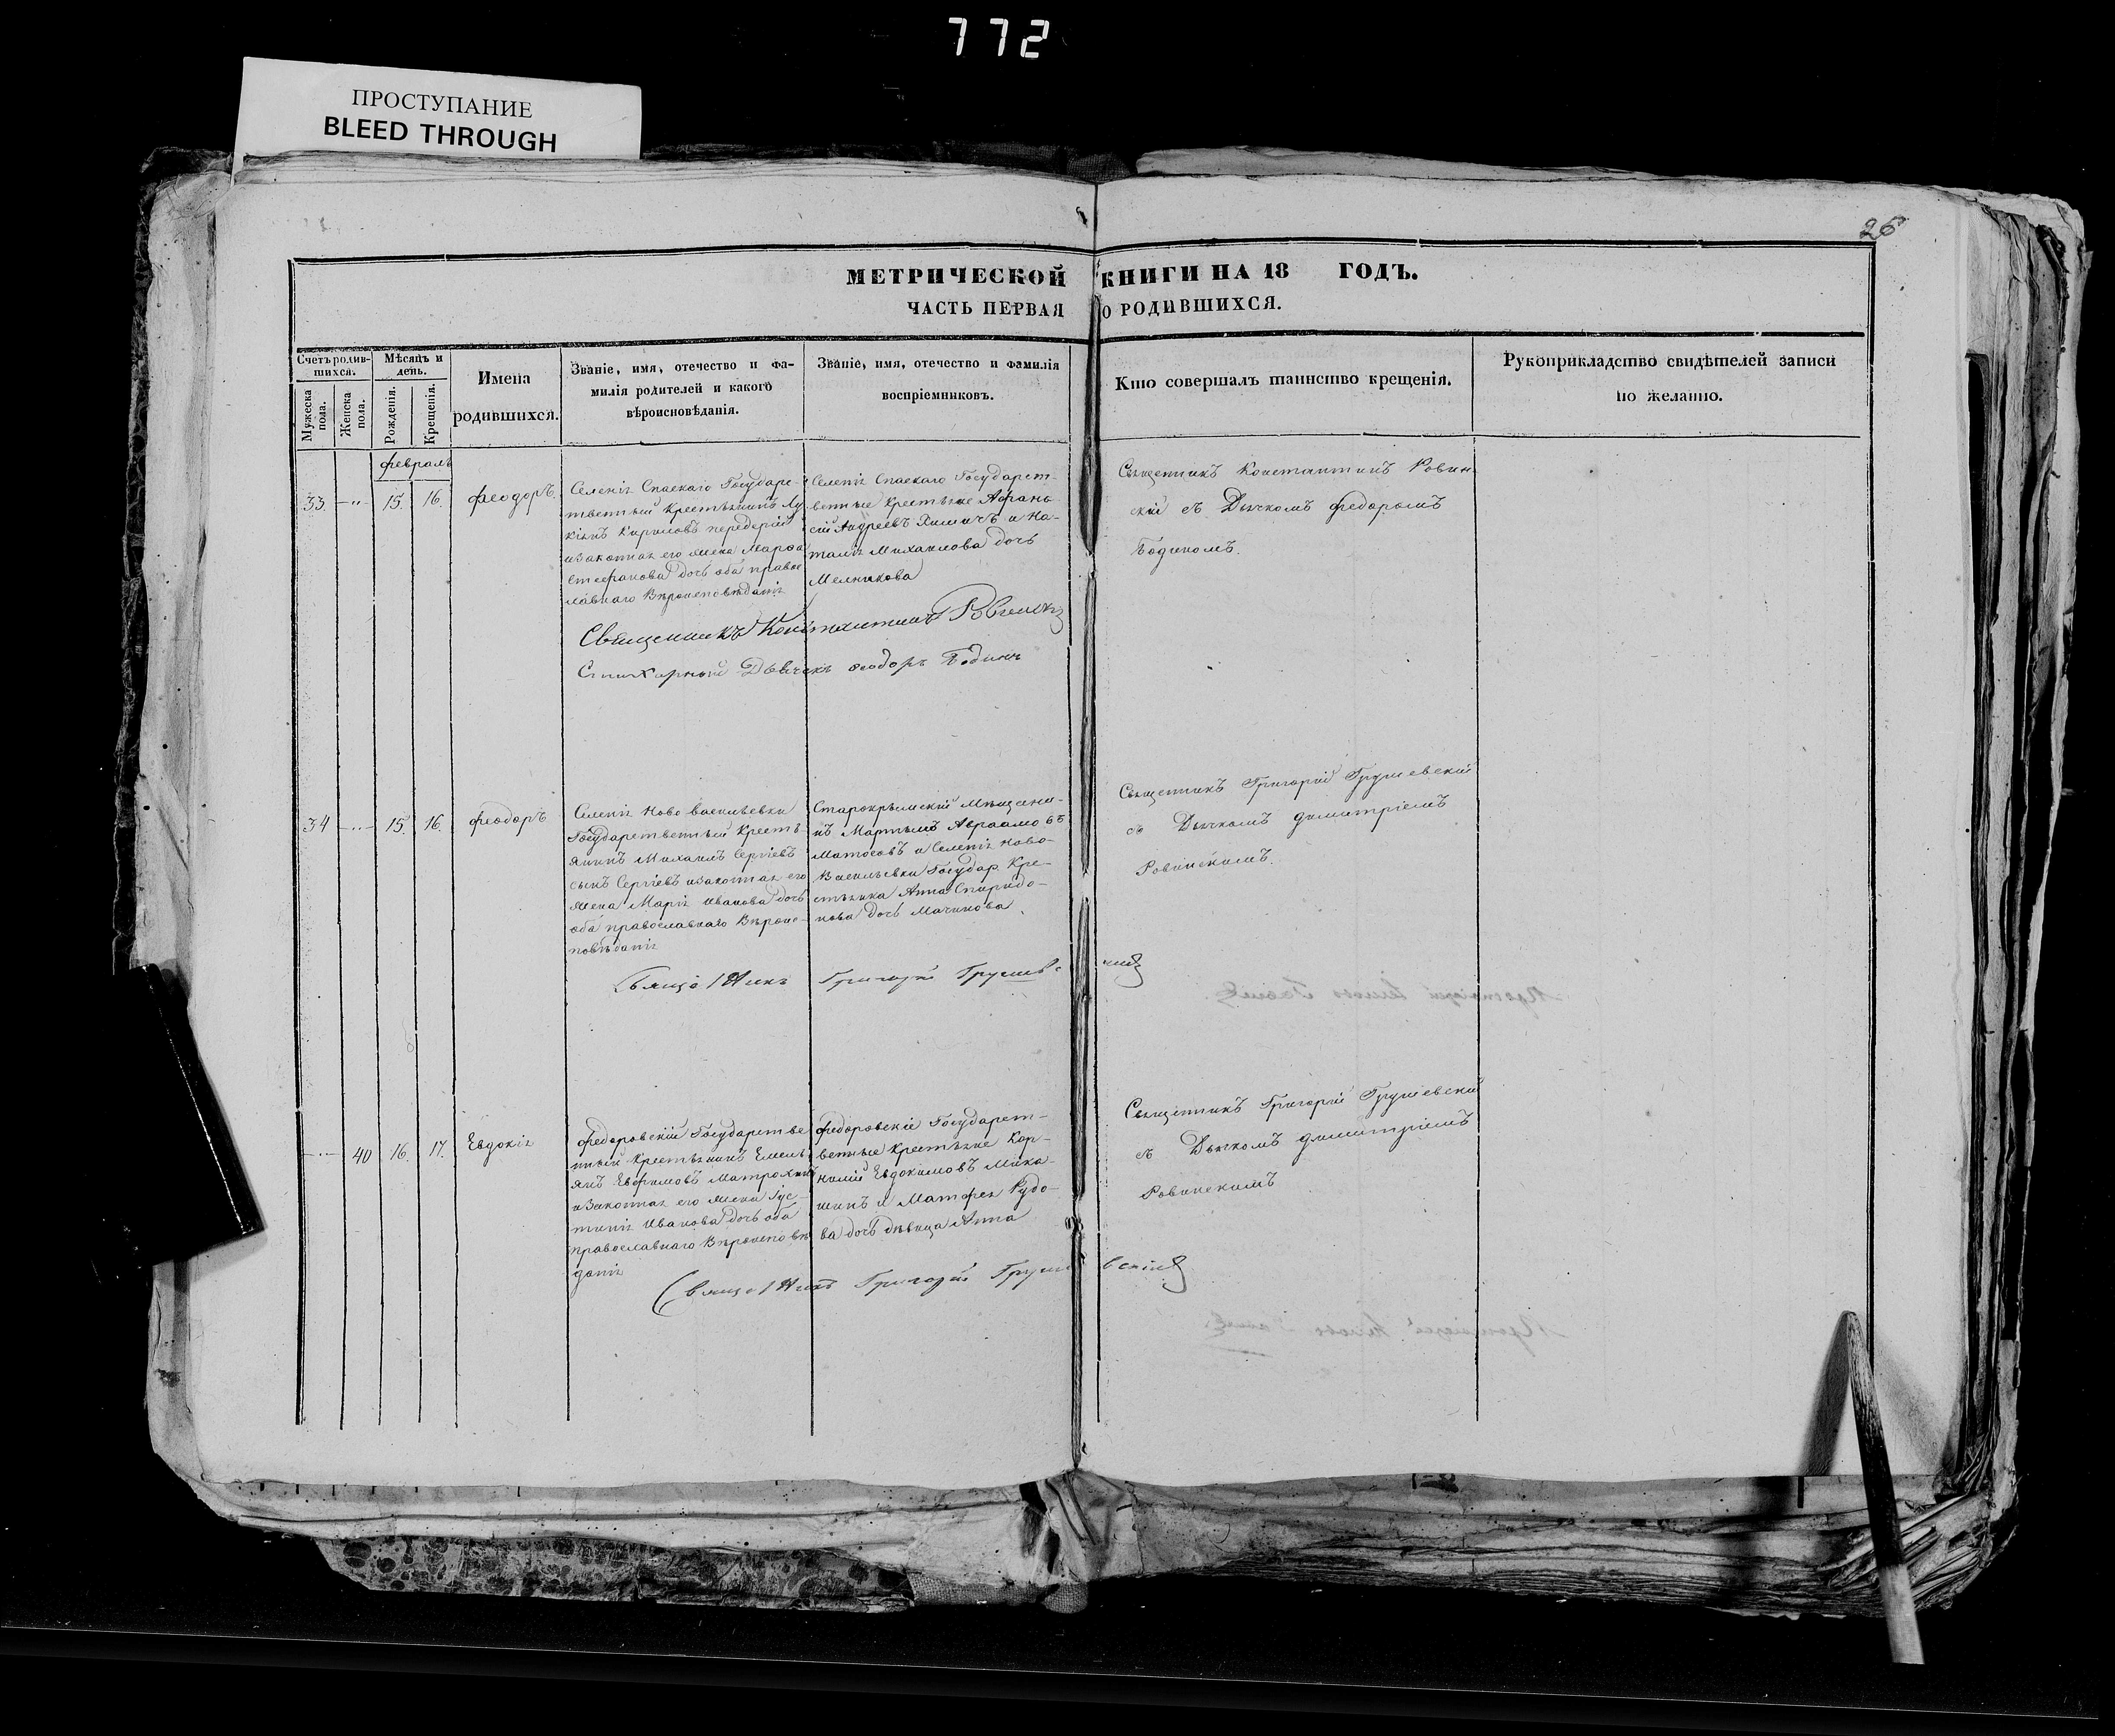 772
ПРОСТУПАНИЕ
BLEED THROUGH
26
МЕТРИЧЕСКОЙ КНИГИ НА 18 ГОДЪ.
ЧАСТЬ ПЕРВАЯ О РОДИВШИХСЯ.
Счетъ родив-
шихся.
Мужеска
пола.
Женска
пола.
Мѣсяцъ и
день.
Рожденія.
Крещенія.
Имена
родившихся.
Званіе, имя, отечество и фа-
милія родителей и какого
вѣроисновѣданія.
Званіе, имя, отечество и фамилія
воспріемниковъ.
Кто совершалъ таинство крещенія.
Рукоприкладство свидѣтелей записи
по желанію.
февраль
33 —"— 15. 16. феодоръ.
Селенія Спаскаго Государс-
твенный крестьянинъ Лу
кіянъ Кириловъ
изаконная его жена Марфа
Стефанова дочь оба право
славнаго Вѣроисповѣданія
Селенія Спаскаго Государст-
венные крестьяне Афана-
сій Андреевъ и На-
талія Михаилова дочь
Мелникова
Священникъ Константинъ Ровин-
скій съ Дьячкомъ федоромъ
Бодиномъ.
Священникъ Константинъ Ровинскій
Стихарный Дьячекъ Феодоръ Бодинъ
34 —"— 15. 16. феодоръ
Селенія Ново васильевки
Государственный Кресть
янинъ Михаилъ Сергіевъ
сынъ Сергіевъ изаконная его
жена Марія Иванова дочь
оба православнаго Вѣроис-
повѣданія
Старокрымскій Мѣщани-
нъ Мартынъ Авраамовъ
Матосовъ и Селенія Ново-
Васильевки Государ. Кре-
стьянка Анна Спиридо-
нова дочь Мачинова
Священникъ Григорій Грушевскій
съ Дьячкомъ Димитріемъ
Ровинскимъ.
Священникъ Григорій Грушевскій
—"— 40 16. 17. Евдокія
федоровскій Государстве
нный Крестьянинъ Емель
янъ Ефимовъ
изаконная его жена Іус-
тинія Иванова дочь оба
православнаго Вѣроисповѣ
данія
федоровскіе Государст-
венные Крестьяне Кор-
нилій Евдокимовъ Мика-
шинъ и Матфея Рудо-
ва дочь дѣвица Анна
Священникъ Григорій Грушевскій
съ Дьячкомъ Димитріемъ
Ровинскимъ
Священникъ Григорій Грушевскій